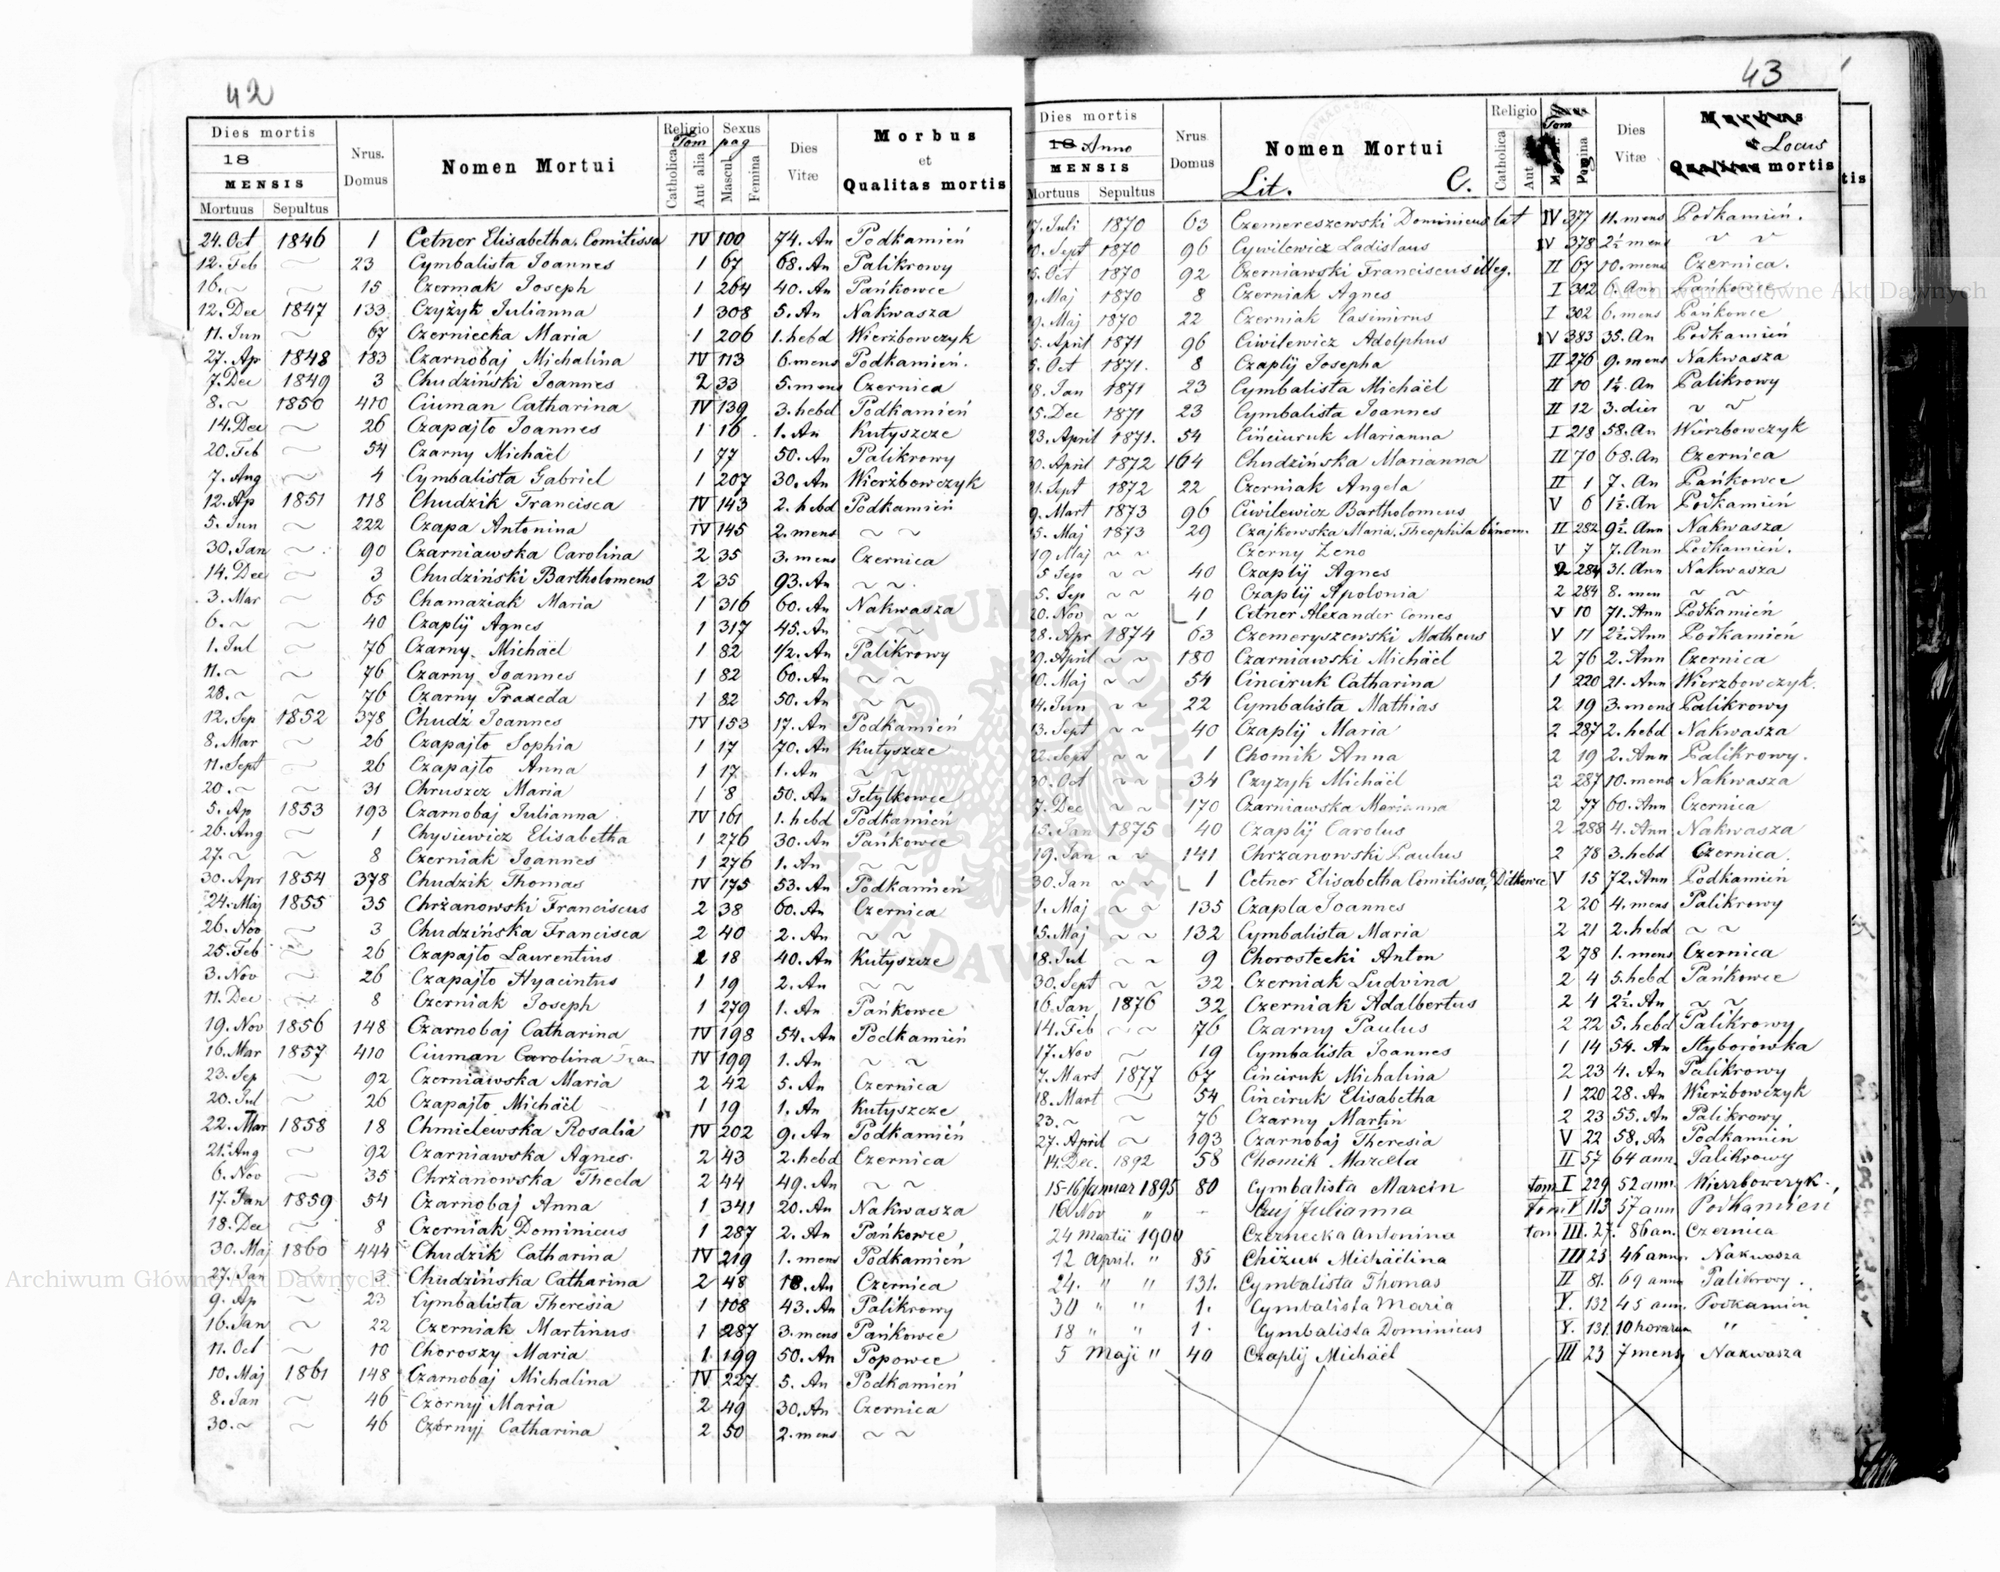 42
Dies mortis
18
MENSIS
Mortuus Sepultus
Nrus. Domus
Nomen Mortui
Religio Tom
Catholica
Aut alia
Sexus pag
Mascul.
Femina
Dies Vitæ
Morbus
et
Qualitas mortis
24. Oct 1846 1 Cetner Elisabetha, Comitissa IV 100 74. An Podkamień
12. Feb ~ 23 Cymbalista Joannes 1 67 68. An Palikrowy
16. ~ ~ 15 Czermak Joseph 1 264 40. An Pańkowce
12. Dec 1847 133 Czyżyk Julianna 1 308 5. An Nakwasza
11. Jun ~ 67 Czerniecka Maria 1 206 1. hebd Wierzbowczyk
27. Ap 1848 183 Czarnobaj Michalina IV 113 6. mens Podkamień.
7. Dec 1849 3 Chudziński Joannes 2 33 5. mens Czernica
8. ~ 1850 410 Ciuman Catharina IV 139 3. hebd Podkamień
14. Dec ~ 26 Czapajło Joannes 1 16 1. An Kutyszcze
20. Feb ~ 54 Czarny Michäel 1 77 50. An Palikrowy
7. Aug ~ 4 Cymbalista Gabriel 1 207 30. An Wierzbowczyk
12. Ap 1851 118 Chudzik Francisca IV 143 2. hebd Podkamień
5. Jun ~ 222 Czapa Antonina IV 145 2. mens ~ ~
30. Jan ~ 90 Czarniawska Carolina 2 35 3. mens Czernica
14. Dec ~ 3 Chudziński Bartholomeus 2 35 93. An ~ ~
3. Mar ~ 65 Chamaziak Maria 1 316 60. An Nakwasza
6. ~ ~ 40 Czaplij Agnes 1 317 45. An ~ ~
1. Jul ~ 76 Czarny Michäel 1 82 1/2. An Palikrowy
11. ~ ~ 76 Czarny Joannes 1 82 60. An ~ ~
28. ~ ~ 76 Czarny Praxeda 1 82 50. An ~ ~
12. Sep 1852 378 Chudź Joannes IV 153 17. An Podkamień
8. Mar ~ 26 Czapajło Sophia 1 17 70. An Kutyszcze
11. Sept ~ 26 Czapajło Anna 1 17 1. An ~ ~
20. ~ ~ 31 Chruszcz Maria 1 8 50. An Tetylkowce
5. Ap 1853 193 Czarnobaj Julianna IV 161 1. hebd Podkamień
26. Aug ~ 1 Chysiewicz Elisabetha 1 276 30. An Pańkowce
27. ~ ~ 8 Czerniak Joannes 1 276 1. An ~ ~
30. Apr 1854 378 Chudzik Thomas IV 175 53. An Podkamień
24. Maj 1855 35 Chrżanowski Franciscus 2 38 60. An Czernica
26. Nov ~ 3 Chudzińska Francisca 2 40 2. An ~ ~
25. Feb ~ 26 Czapajło Laurentius 1 18 40. An Kutyszcze
3. Nov ~ 26 Czapajło Hyacintus 1 19 2. An ~ ~
11. Dec ~ 8 Czerniak Joseph 1 279 1. An Pańkowce
19. Nov 1856 148 Czarnobaj Catharina IV 198 54. An Podkamień
16. Mar 1857 410 Ciuman Carolina IV 199 1. An ~ ~
23. Sep ~ 92 Czerniawska Maria 2 42 5. An Czernica
20. Jul ~ 26 Czapajło Michäel 1 19 1. An Kutyszcze
22. Mar 1858 18 Chmielewska Rosalia IV 202 9. An Podkamień
21. Aug ~ 92 Czarniawska Agnes. 2 43 2. hebd Czernica
6. Nov ~ 35 Chrżanowska Thecla 2 44 49. An ~ ~
17. Jan 1859 54 Czarnobaj Anna 1 341 20. An Nakwasza
18. Dec ~ 8 Czerniak Dominicus 1 287 2. An Pańkowce
30. Maj 1860 444 Chudzik Catharina IV 219 1. mens Podkamień
27. Jan ~ 3 Chudzińska Catharina 2 48 18. An Czernica
9. Ap ~ 23 Cymbalista Theresia 1 108 43. An Palikrowy
16. Jan ~ 22 Czerniak Martinus 1 287 3. mens Pańkowce
11. Oct ~ 10 Choroszy Maria 1 199 50. An Popowce
10. Maj 1861 148 Czarnobaj Michalina IV 227 5. An Podkamień
8. Jan ~ 46 Czornyj Maria 2 49 30. An Czernica
30. ~ ~ 46 Czórnyj Catharina 2 50 2. mens ~ ~
43
Dies mortis
18 Anno
MENSIS
Mortuus Sepultus
Nrus Domus
Nomen Mortui
Lit. C.
Religio
Catholica
Aut
Sexus
Tom
Pagina
Dies Vitæ
Morbus
et Locus
Qualitas mortis
tis
17. Juli 1870 63 Czemereszewski Dominicus lat IV 377 11. mens Podkamień.
Sept 1870 96 Cywilewicz Ladislaus IV 378 2½ mens ~ ~
Oct 1870 92 Czerniawski Franciscus illeg. II 67 10. mens Czernica.
Maj 1870 8 Czerniak Agnes I 302 6. Ann Pańkowce
9. Maj 1870 22 Czerniak Casimirus I 302 6. mens Pańkowce
5. April 1871 96 Ciwilewicz Adolphus IV 383 35. An Podkamień
Oct 1871. 8 Czaplij Josepha II 276 9. mens Nakwasza
8. Jan 1871 23 Cymbalista Michäel II 10 1¼. An Palikrowy
15. Dec 1871 23 Cymbalista Joannes II 12 3. dies ~ ~
23. April 1871. 54 Cińciuruk Marianna I 218 58. An Wierzbowczyk
30. April 1872 164 Chudzińska Marianna II 70 68. An Czernica
21. Sept 1872 22 Czerniak Angela II 1 7. An Pańkowce
9. Mart 1873 96 Ciwilewicz Bartholomeus V 6 1½. An Podkamień
5. Maj 1873 29 Czajkowska Maria, Theophila binom. II 282 9½. Ann Nakwasza
19 Maj ~ ~ Czerny Zeno V 7 7. Ann Podkamień.
5 Sep ~ ~ 40 Czaplij Agnes 2 284 31. Ann Nakwasza
5. Sep ~ ~ 40 Czaplij Apolonia 2 284 8. men ~ ~
20. Nov ~ ~ 1 Cetner Alexander Comes V 10 71. Ann Podkamień
28. Apr 1874 63 Czemeryszewski Matheus V 11 2½. Ann Podkamień
29. April ~ ~ 180 Czarniawski Michäel 2 76 2. Ann Czernica
10. Maj ~ ~ 54 Cinciruk Catharina 1 220 21. Ann Wierzbowczyk.
14. Jun ~ ~ 22 Cymbalista Mathias 2 19 3. mens Palikrowy
13. Sept ~ ~ 40 Czaplij Maria 2 287 2. hebd Nakwasza
22. Sept ~ ~ 1 Chomik Anna 2 19 2. Ann Palikrowy.
30. Oct ~ ~ 34 Czyzyk Michäel 2 287 10. mens Nakwasza
7. Dec ~ ~ 170 Czarniawska Marianna 2 77 60. Ann Czernica
15. Jan 1875 40 Czaplij Carolus 2 288 4. Ann Nakwasza
19. Jan ~ ~ 141 Chrzanowski Paulus 2 78 3. hebd Czernica.
30. Jan ~ ~ 1 Cetner Elisabetha Comitissa, Ditkowce V 15 72. Ann Podkamień
1. Maj ~ ~ 135 Czapla Joannes 2 20 4. mens Palikrowy
15. Maj ~ ~ 132 Cymbalista Maria 2 21 2. hebd ~ ~
18. Jul ~ ~ 9 Chorostecki Anton 2 78 1. mens Czernica
30. Sept ~ ~ 32 Czerniak Ludvina 2 4 5. hebd Pańkowce
16. Jan 1876 32 Czerniak Adalbertus 2 4 2½. An ~ ~
14. Feb ~ ~ 76 Czarny Paulus 2 22 5. hebd Palikrowy
17. Nov ~ 19 Cymbalista Joannes 1 14 54. An Styborówka
7. Mart 1877 67 Cińciruk Michalina 2 23 4. An Palikrowy
18. Mart ~ 54 Cińciruk Elisabetha 1 220 28. An Wierzbowczyk
23. ~ ~ 76 Czarny Martin 2 23 55. An Palikrowy
27. April ~ 193 Czarnobaj Theresia V 22 58. An Podkamień
14. Dec. 1892 58 Chomik Marcela II 57 64 ann. Palikrowy
15-16 Januar 1895 80 Cymbalista Marcin tom I 229 52 ann. Wierzbowczyk.
16 Nov " - Czuj Julianna tom V 113 57 ann Podkamień
24 Martii 1900 Czernecka Antonina tom III. 27. 86 an. Czernica
12 April. " 85 Chiżuk Michäelina III 23 46 ann. Nakwasza
24. " " 131. Cymbalista Thomas II 81. 69 anno Palikrowy.
30 " " 1. Cymbalista Maria V. 132 45 ann. Podkamień
18 " " 1. Cymbalista Dominicus V. 131. 10 horarum "
5 Maji " 40 Czaplij Michäel III 23 7 mens Nakwasza
Archiwum Główne Akt Dawnych
Archiwum Główne Akt Dawnych
ARCHIWUM GŁÓWNE AKT DAWNYCH